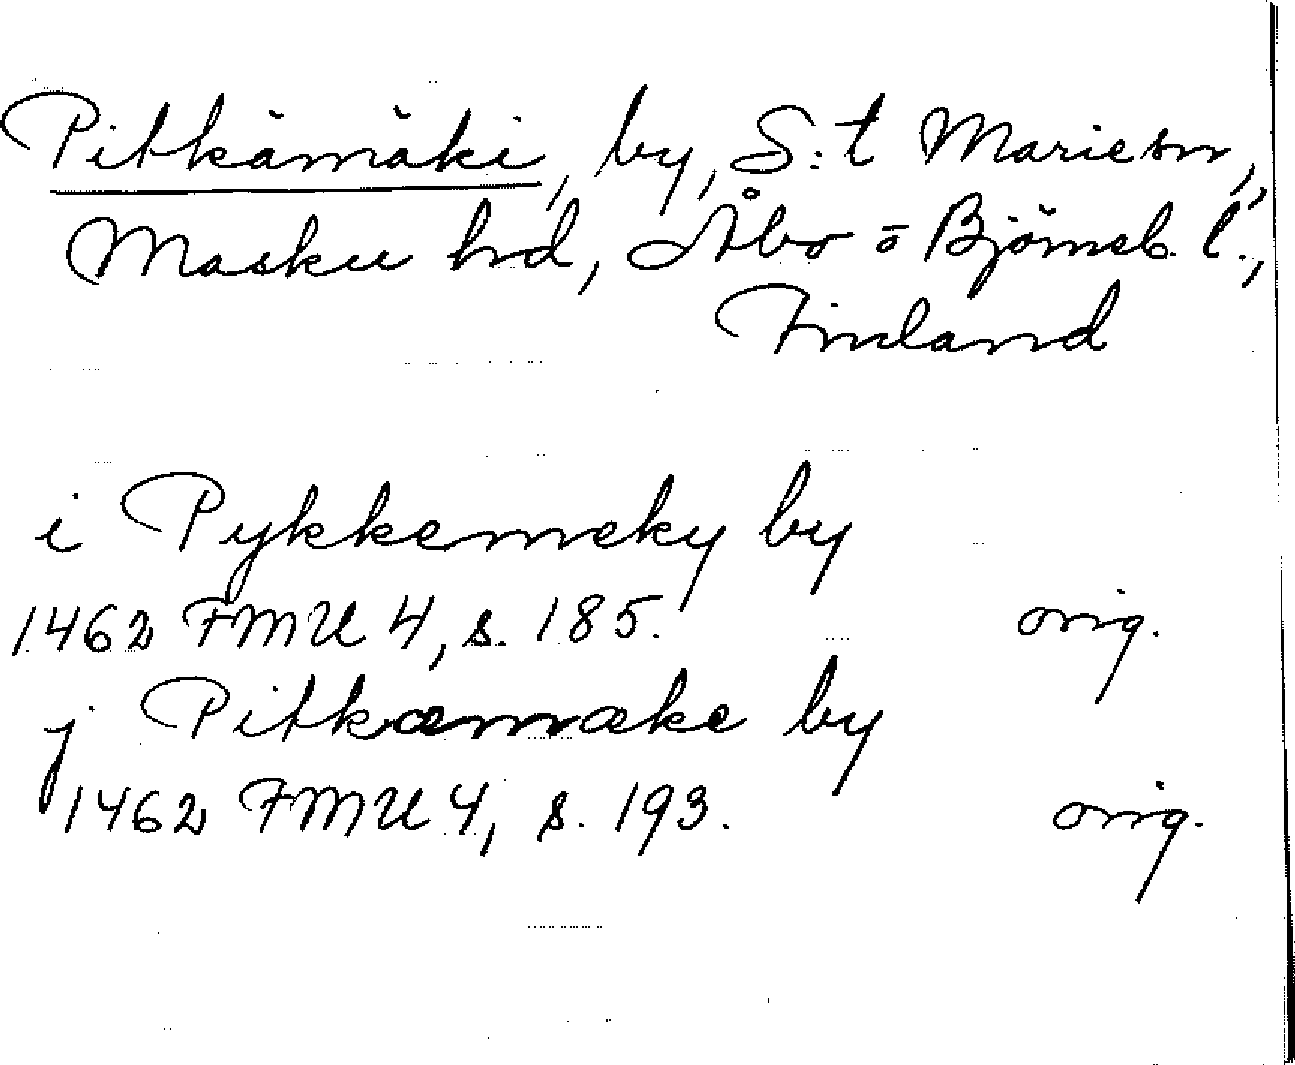 Pitkämäki, by, S:t Marie sn,
Masku hd, Åbo o Björneb. l.,
Finland
i Pykkemeky by
1462 FMU 4, s. 185. orig.
j Pitkæmæke by
1462 FMU 4, s. 193. orig.